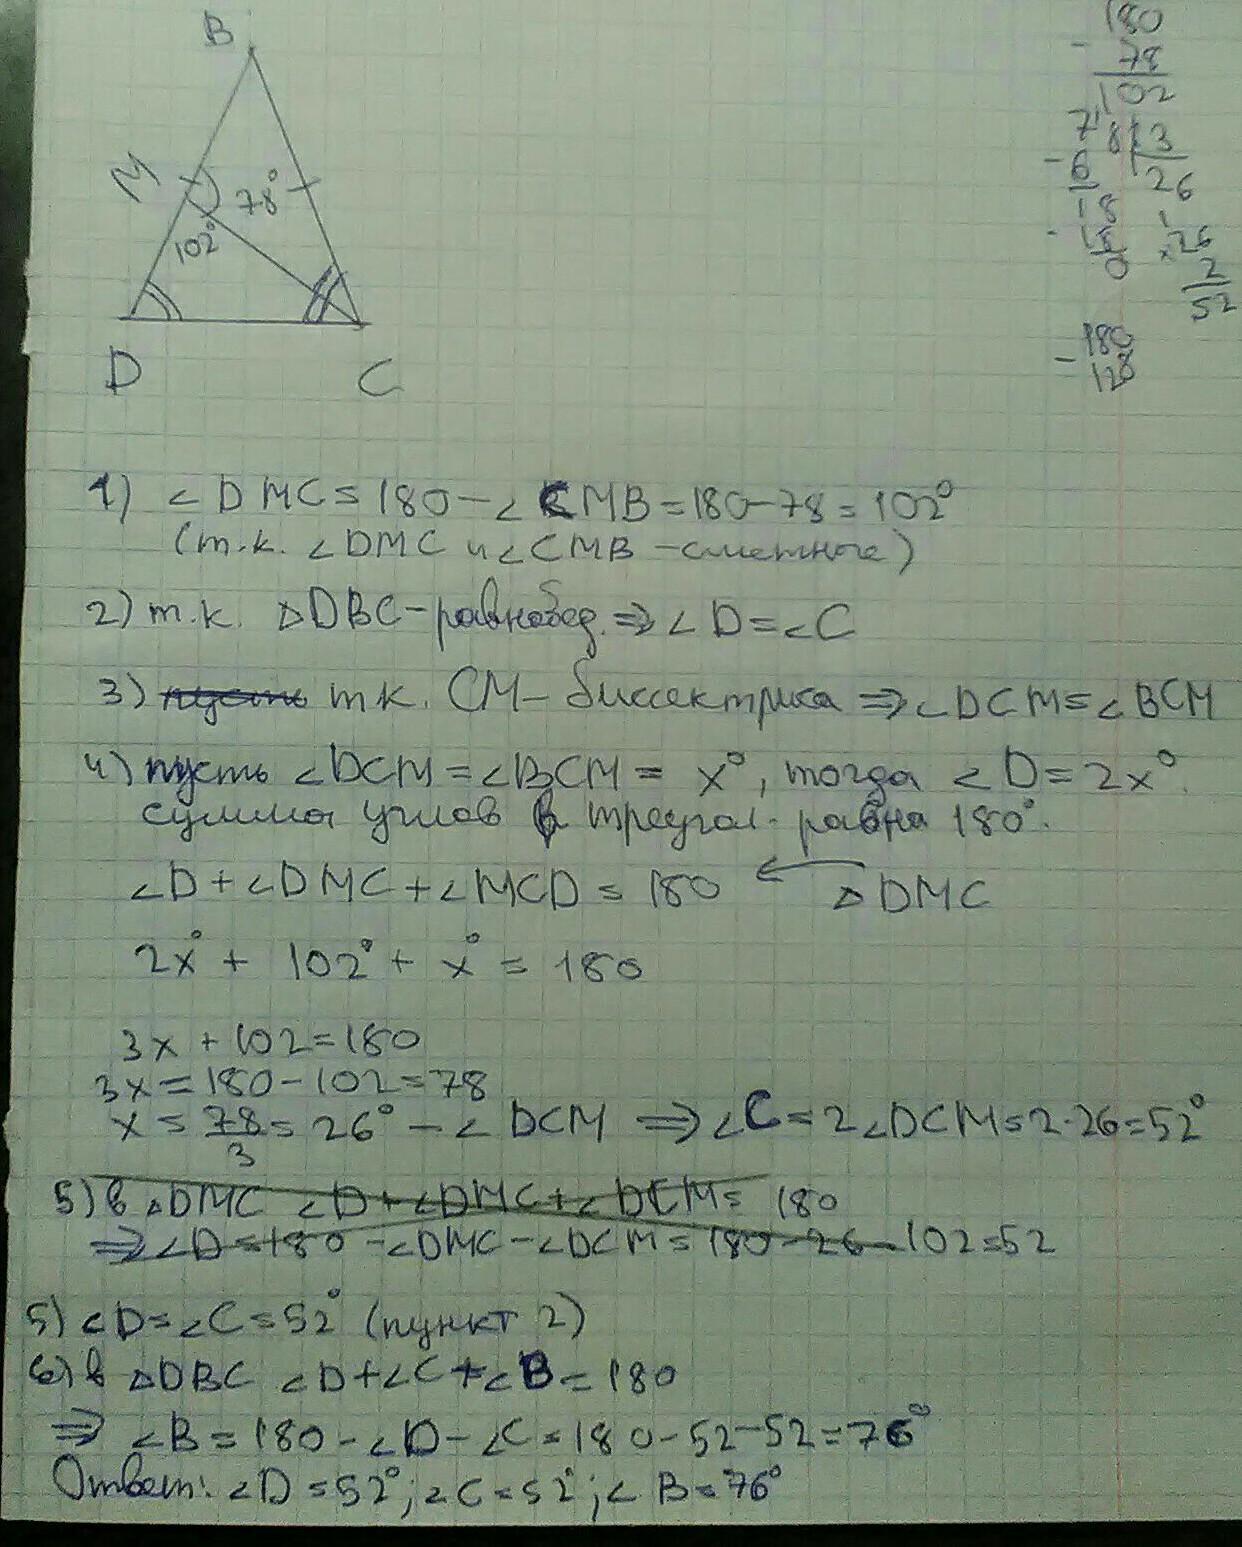 B
M
78°
102°
D
C
180
- 78
102
78 | 3
- 6 26
18
- 18
0
× 26
2
52
- 180
128
1) ∠DMC = 180 - ∠CMB = 180 - 78 = 102°
(т.к. ∠DMC и ∠CMB - сметные)
2) т.к. ΔDBC - равнобед. ⇒ ∠D = ∠C
3) пусть т.к. CM - биссектриса ⇒ ∠DCM = ∠BCM
4) пусть ∠DCM = ∠BCM = x°, тогда ∠D = 2x°.
сумма углов в треугол. равна 180°.
∠D + ∠DMC + ∠MCD = 180 ← ΔDMC
2x° + 102° + x° = 180
3x + 102 = 180
3x = 180 - 102 = 78
x = 78/3 = 26° - ∠DCM ⇒ ∠C = 2∠DCM = 2·26 = 52°
5) в ΔDMC ∠D + ∠DMC + ∠DCM = 180
⇒ ∠D = 180 - ∠DMC - ∠DCM = 180 - 26 - 102 = 52
5) ∠D = ∠C = 52° (пункт 2)
6) в ΔDBC ∠D + ∠C + ∠B = 180
⇒ ∠B = 180 - ∠D - ∠C = 180 - 52 - 52 = 76°
Ответ: ∠D = 52°; ∠C = 52°; ∠B = 76°